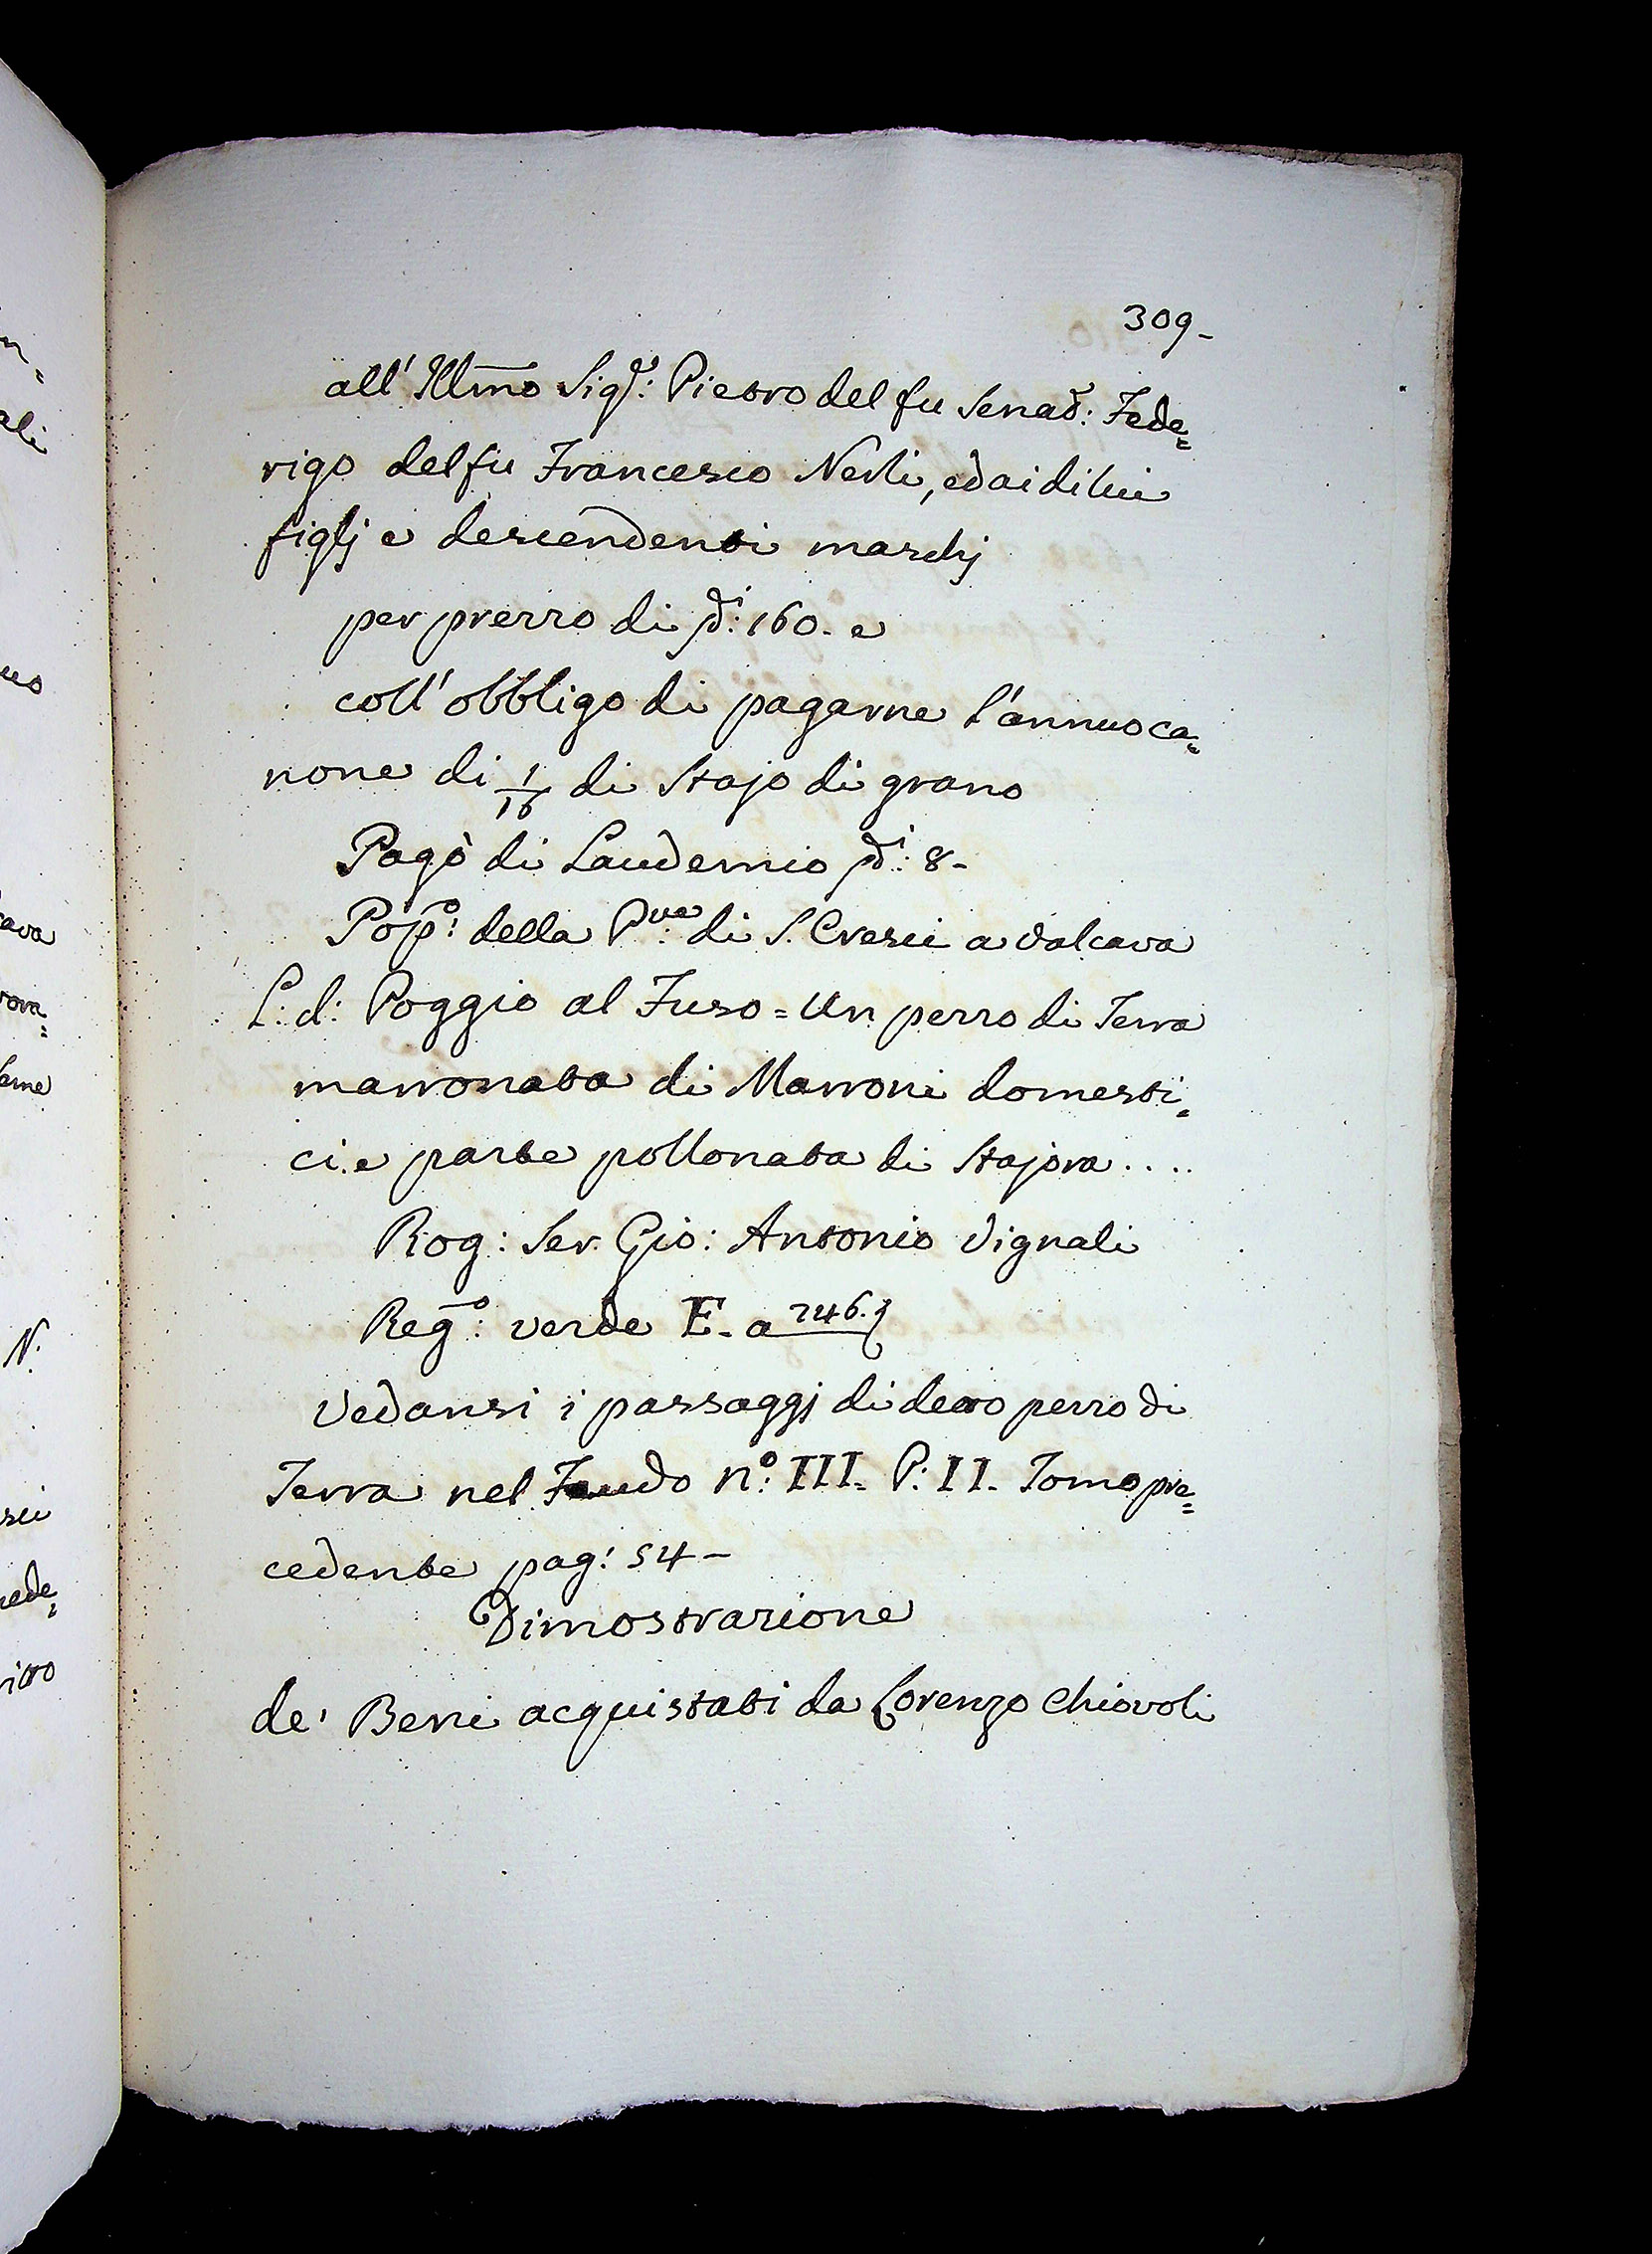 309-
all' Illmo Sig.r: Pietro del fu Senat: Fede=
rigo del fu Francesco Nerli, ed ai di lui
figlj e descendenti maschj
per prezzo di di: 160. e
coll' obbligo di pagarne l'annuo ca=
none di 1/16 di Stajo di grano
Pagò di Laudemio di: 8-
Pop.o: della P.ve: di S. Cresci a Valcava
L: d: Poggio al Fuso = Un pezzo di Terra
marronata di Marroni domesti=
ci e parte pollonata di Stajora ....
Rog: Ser Gio: Antonio Vignali
Reg.o: verde E. a 246.
Vedansi i passaggj di detto pezzo di
Terra nel Feudo n.o: III. P: II. Tomo pre=
cedente pag: 54-
Dimostrazione
de' Beni acquistati da Lorenzo Chiovoli
ali
N.